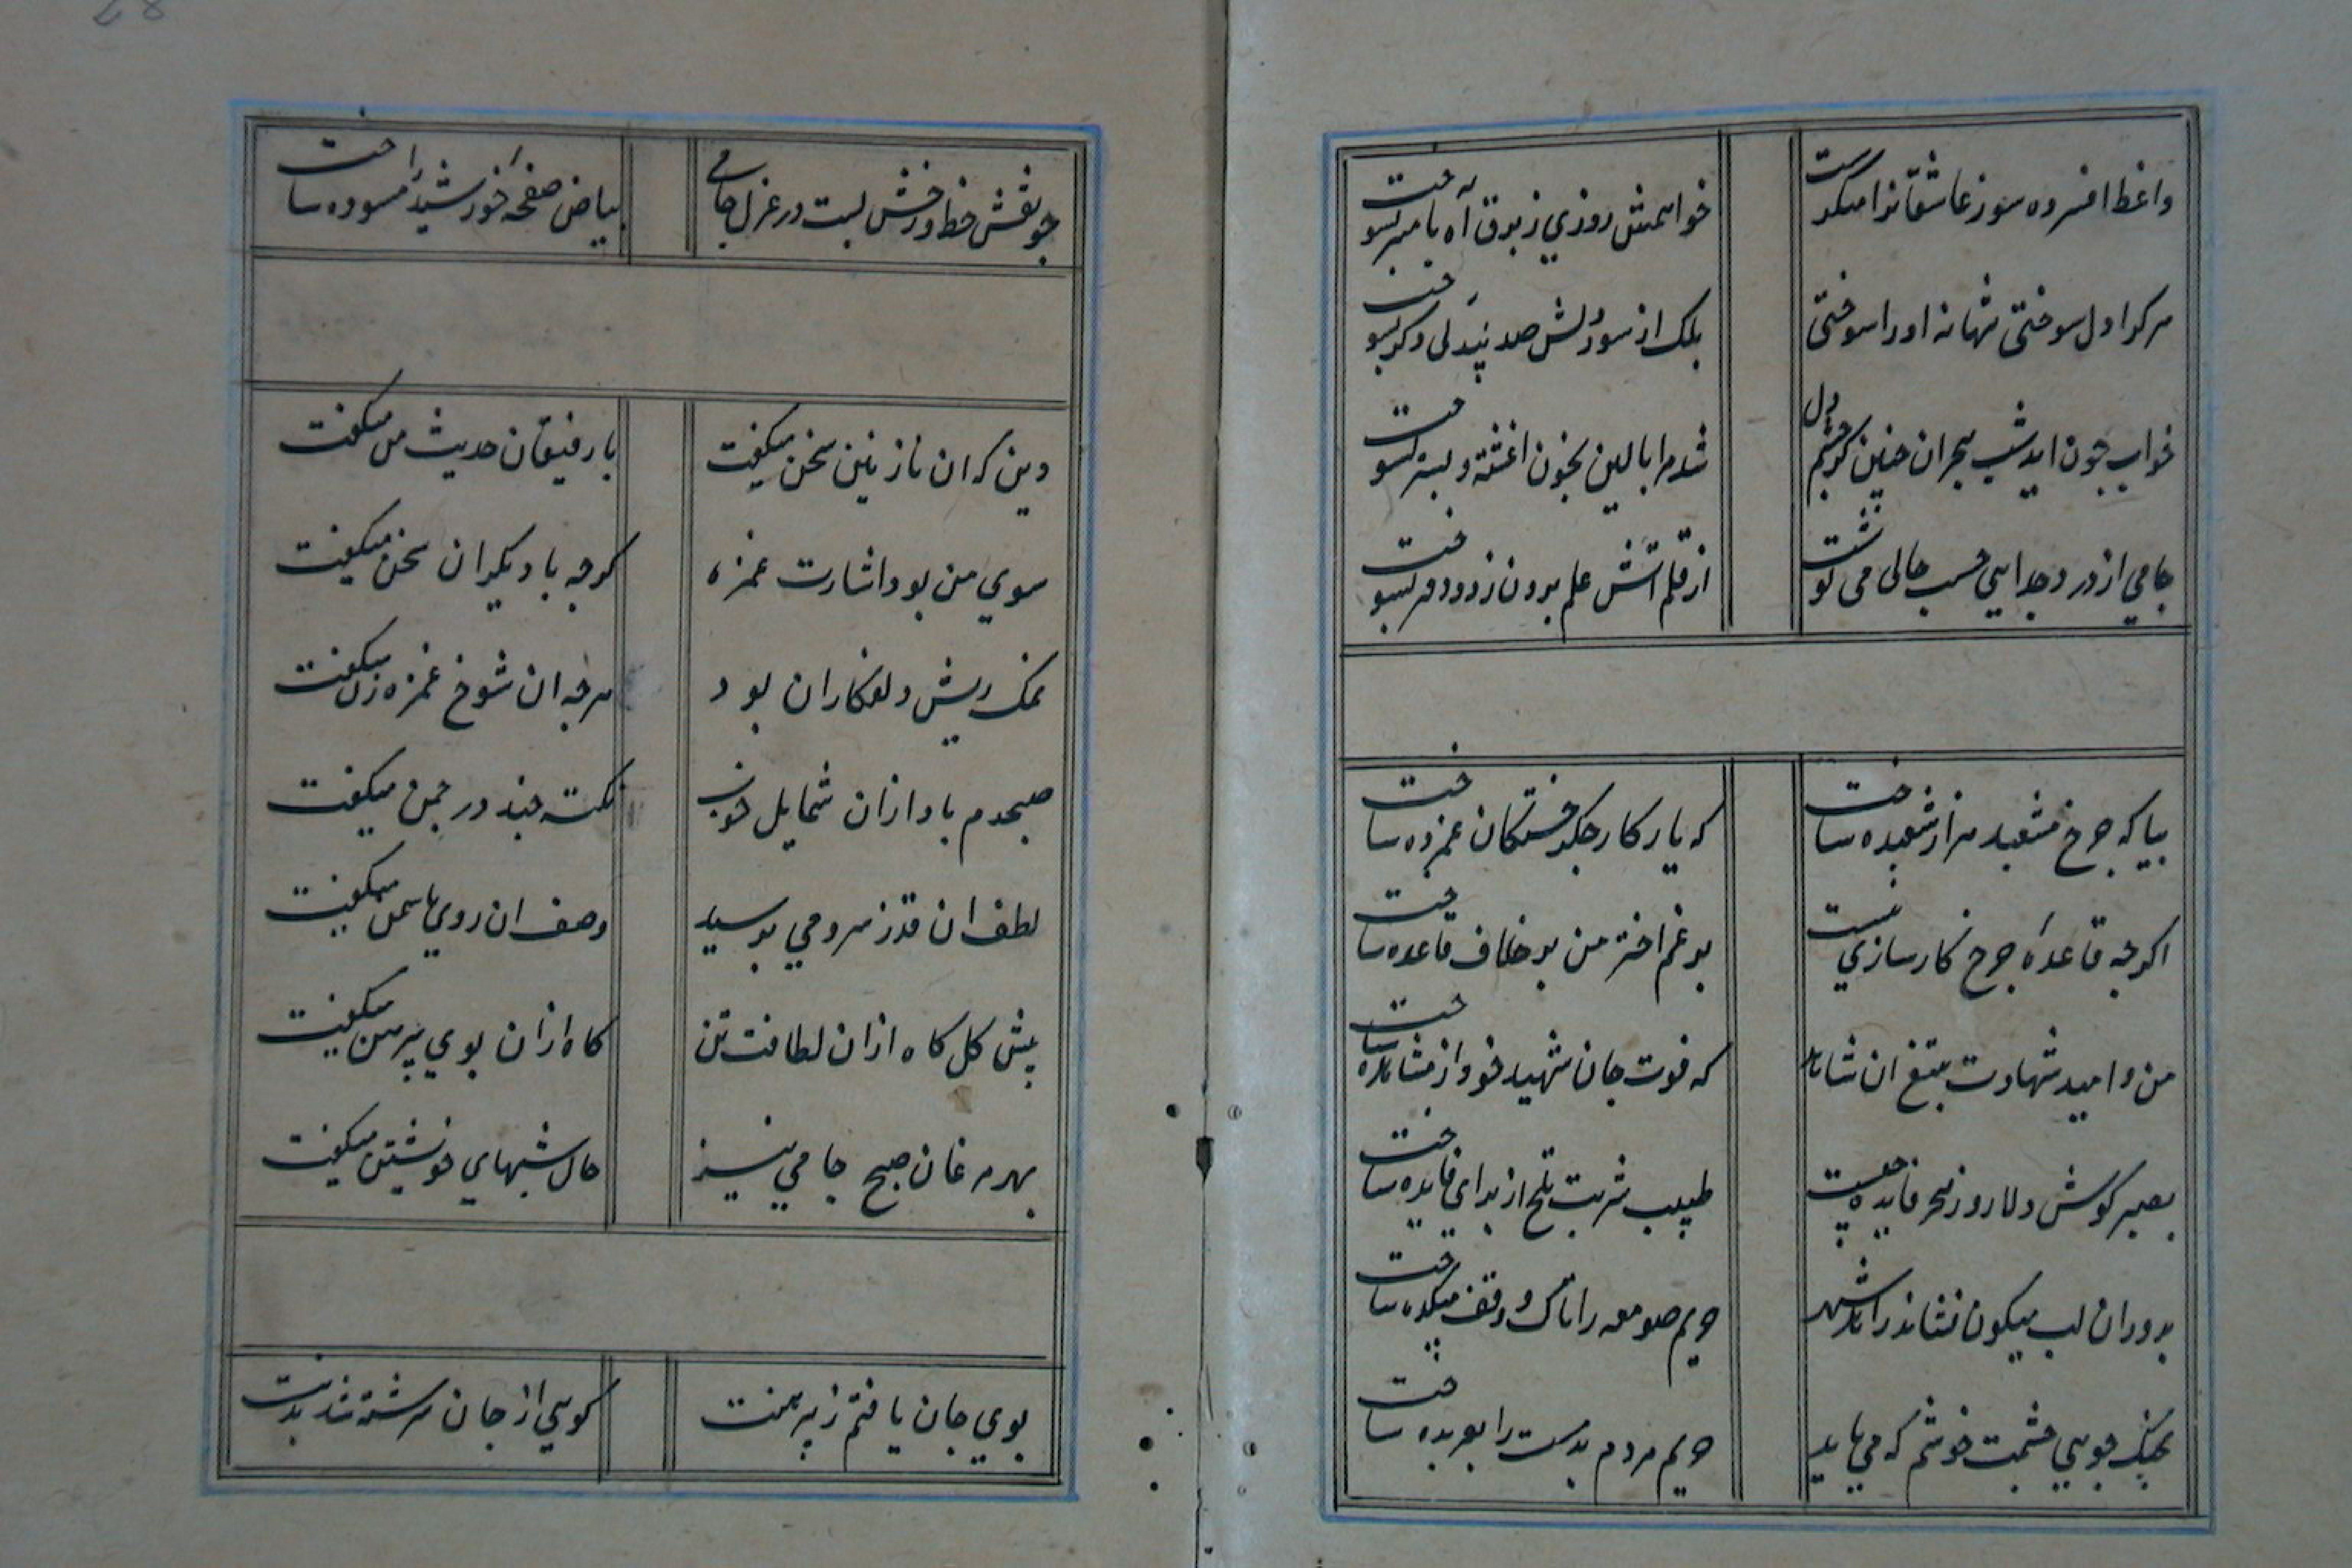 واعظ افسرده سوز عاشقانرا منکرست
خواهمش روزي ز برق آه با منبر بسوخت
هر کرا دل سوختی تنها نه اورا سوختی
بلک از سوز دلش صد بیدلی دیکر بسوخت
خواب چون اید شب هجران چنین کز چشم و دل
شد مرا بالین بخون اغشته و بستر بسوخت
جامي از درد جدایي حسب حالی می نوشت
از قلم اتش علم برون زد و دفتر بسوخت
بیا که چرخ مشعبد هزار شعبده ساخت
که یار کار جکر خستکان غمزده ساخت
اکرچه قاعدهٔ چرخ کارسازي نیست
برغم اختر من بر خلاف قاعده ساخت
من و امید شهادت بتیغ ان شاهد
که قوت جان شهید خود از مشاهده ساخت
بصبر کوش دلا روز هجر فایده چیست
طبیب شربت تلخ از براي فایده ساخت
بدوران لب میکون نشاند زاهد شهر
حریم صومعه را تاک و وقف میکده ساخت
بجنک جویي چشمت خوشم که می باید
حریم مردم بدمست را بعربده ساخت
چو نقش خط و رخش بست در غزل جامی
بیاض صفحهٔ خورشید را مسوده ساخت
دین که ان نازنین سخن میکفت
با رفیقان حدیث من میکفت
سوي من بود اشارت غمزه
کرچه با دیکران سخن میکفت
نمک ریش دلفکاران بود
هرچه ان شوخ غمزه زن میکفت
صبحدم باد ازان شمایل خوب
نکته چند در چمن میکفت
لطف ان قد ز سرو می پرسید
وصف ان روي با سمن میکفت
پیش کل کاه ازان لطافت تن
کاه ازان بوي پیرهن میکفت
بهر مرغان صبح جامي نیز
حال شبهاي خویشتن میکفت
بوي جان یافتم ز پیرهنت
کویي از جان سرشته شد بدنت